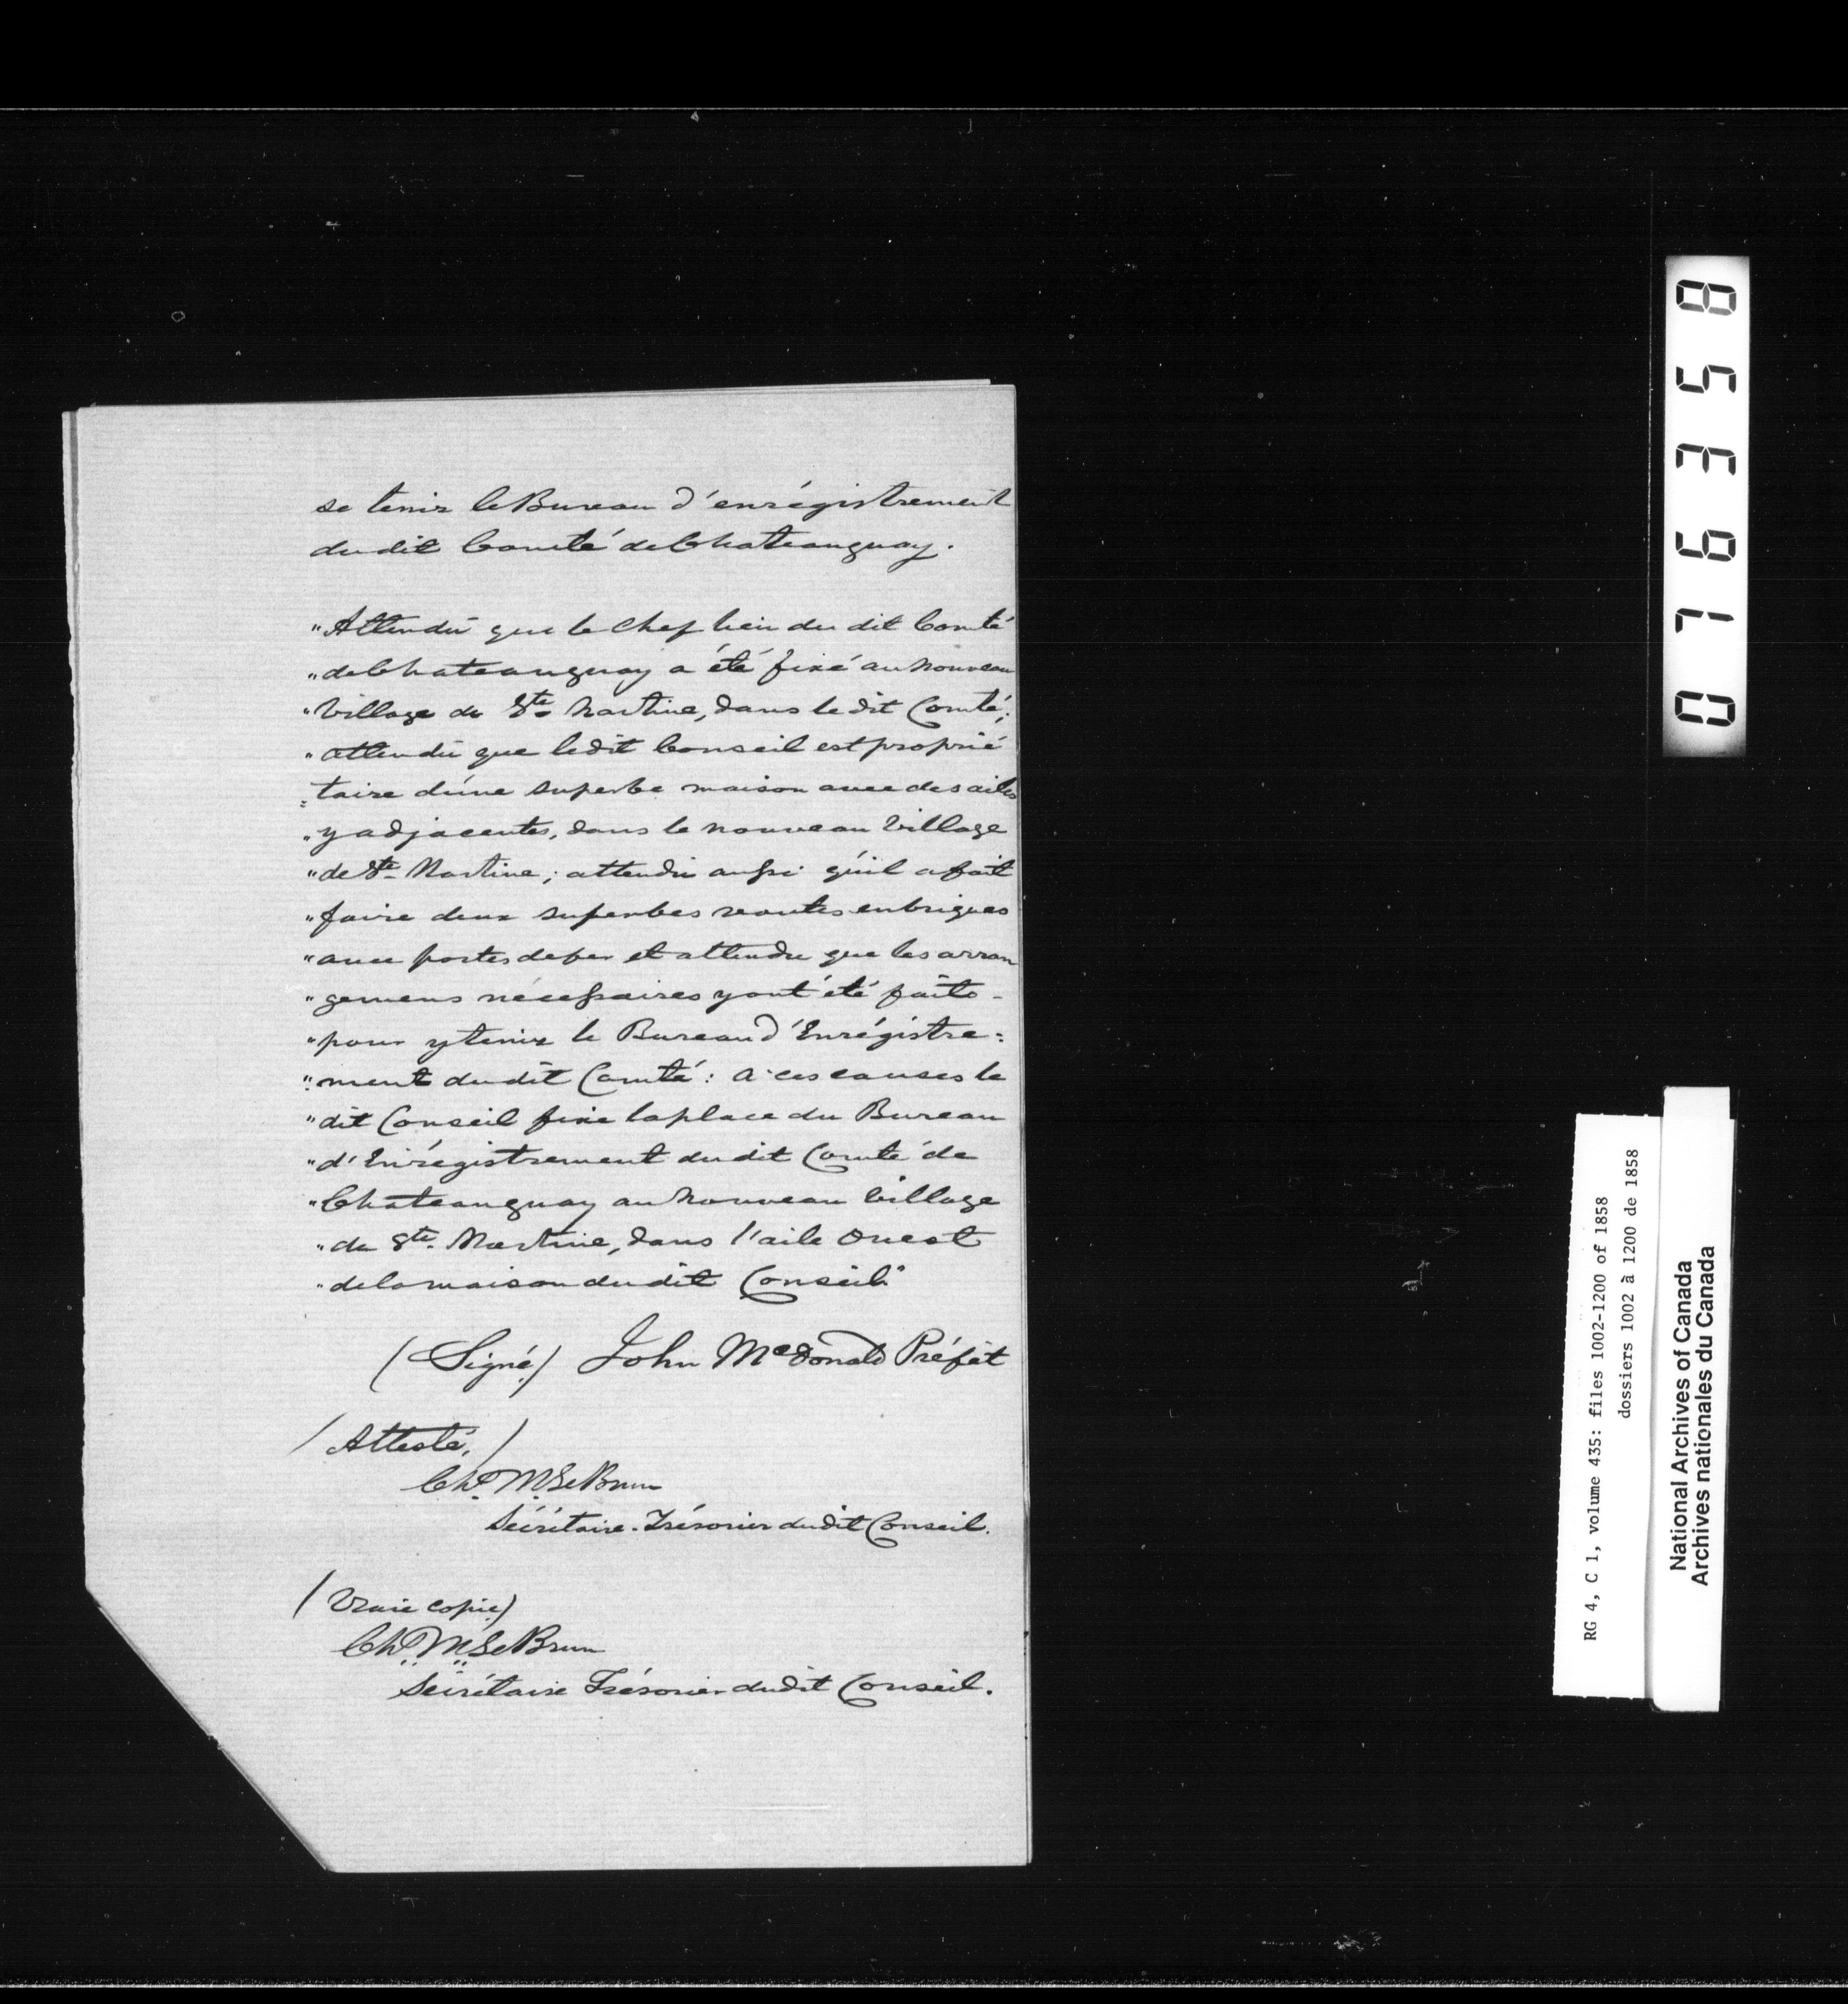 se tenir le Bureau d'enrégistrement
du dit Comté de Chateauguay.
"Attendu que le Chef lieu du dit Comté
"de Chateauguay a été fixé au nouveau
"Village de Ste Martine, dans le dit Comté;
"attendu que ledit Conseil est proprié
"taire d'une superbe maison avec des ailes
"y adjacentes, dans le nouveau Village
"de Ste Martine; attendu aussi qu'il a fait
"faire deux superbes voutes en briques
"avec portes de fer et attendu que les arran
"gemens nécessaires y ont été faits -
"pour y tenir le Bureau d'Enrégistre=
"ment du dit Comté: A ces causes le
"dit Conseil fixe la place du Bureau
"d'Enrégistrement du dit Comté de
"Chateauguay au nouveau Village
"de Ste. Martine, dans l'aile Ouest
"de la maison du dit Conseil"
(Signé) John McDonald Préfêt
(Attesté,)
Chs. M. LeBrun
Sécrétaire-Trésorier du dit Conseil.
(Vraie copie)
Chs. M. LeBrun
Sécrétaire Trésorier du dit Conseil.
076358
RG 4, C 1, volume 435: files 1002-1200 of 1858
dossiers 1002 à 1200 de 1858
National Archives of Canada
Archives nationales du Canada